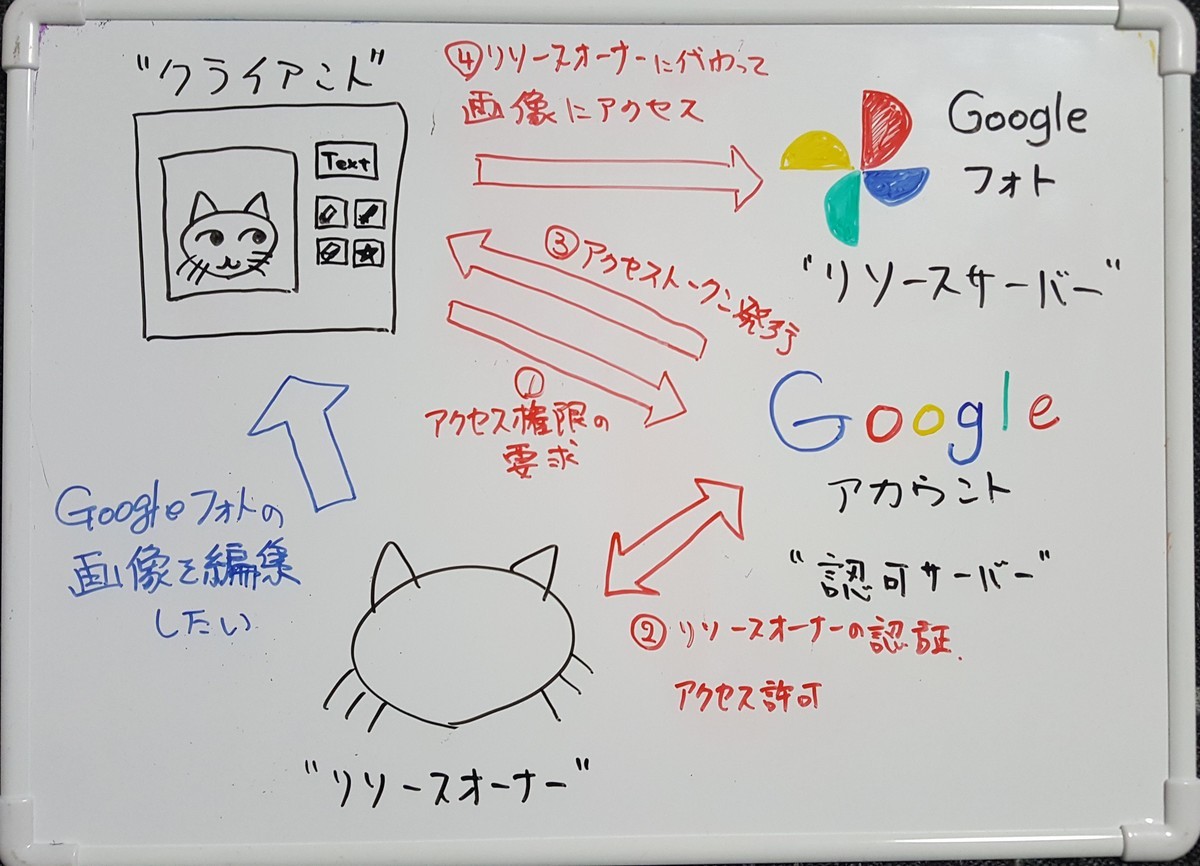 "クライアント"
Text
④リソースオーナーに代わって
画像にアクセス
Google
フォト
"リソースサーバー"
③アクセストークン発行
①
アクセス権限の
要求
Google
アカウント
"認可サーバー"
Googleフォトの
画像を編集
したい
②リソースオーナーの認証、
アクセス許可
"リソースオーナー"